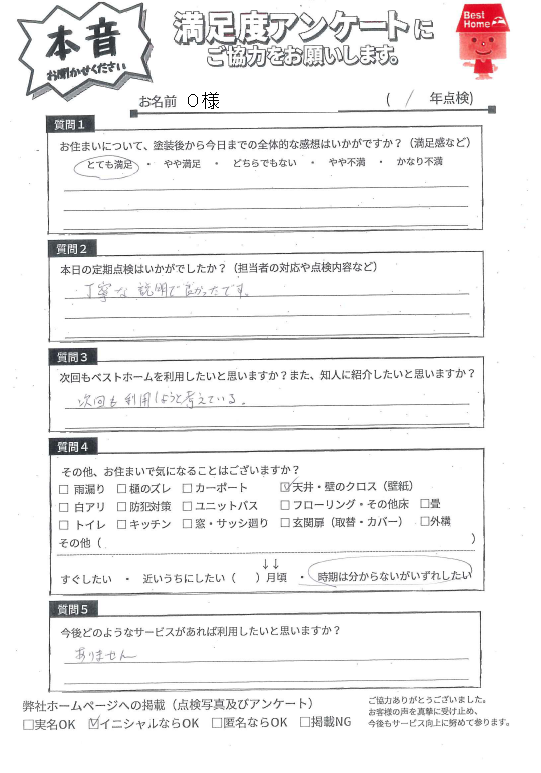 本音
お聞かせください
満足度アンケートに
ご協力をお願いします。
Best
Home
お名前 O様 ( / 年点検)
質問1
お住まいについて、塗装後から今日までの全体的な感想はいかがですか？（満足感など）
とても満足 ・ やや満足 ・ どちらでもない ・ やや不満 ・ かなり不満
質問2
本日の定期点検はいかがでしたか？（担当者の対応や点検内容など）
丁寧な説明で良かったです。
質問3
次回もベストホームを利用したいと思いますか？また、知人に紹介したいと思いますか？
次回も利用しようと考えている。
質問4
その他、お住まいで気になることはございますか？
□ 雨漏り □ 樋のズレ □ カーポート ☑天井・壁のクロス（壁紙）
□ 白アリ □ 防犯対策 □ ユニットバス □ フローリング・その他床 □畳
□ トイレ □ キッチン □ 窓・サッシ廻り □ 玄関扉（取替・カバー） □外構
その他（ ）
↓↓
すぐしたい ・ 近いうちにしたい（ ）月頃 ・ 時期は分からないがいずれしたい
質問5
今後どのようなサービスがあれば利用したいと思いますか？
ありません
弊社ホームページへの掲載（点検写真及びアンケート）
□実名OK ☑イニシャルならOK □匿名ならOK □掲載NG
ご協力ありがとうございました。
お客様の声を真摯に受け止め、
今後もサービス向上に努めて参ります。